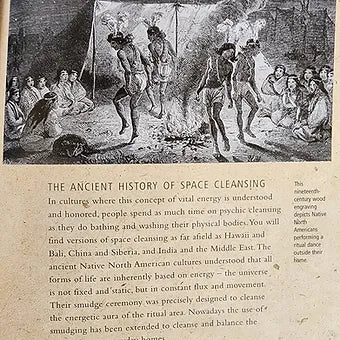 THE ANCIENT HISTORY OF SPACE CLEANSING
In cultures where this concept of vital energy is understood
and honored, people spend as much time on psychic cleansing
as they do bathing and washing their physical bodies. You will
find versions of space cleansing as far afield as Hawaii and
Bali, China and Siberia, and India and the Middle East. The
ancient Native North American cultures understood that all
forms of life are inherently based on energy – the universe
is not fixed and static, but in constant flux and movement.
Their smudge ceremony was precisely designed to cleanse
the energetic aura of the ritual area. Nowadays the use of
smudging has been extended to cleanse and balance the
homes
This
nineteenth-
century wood
engraving
depicts Native
North
Americans
performing a
ritual dance
outside their
home.